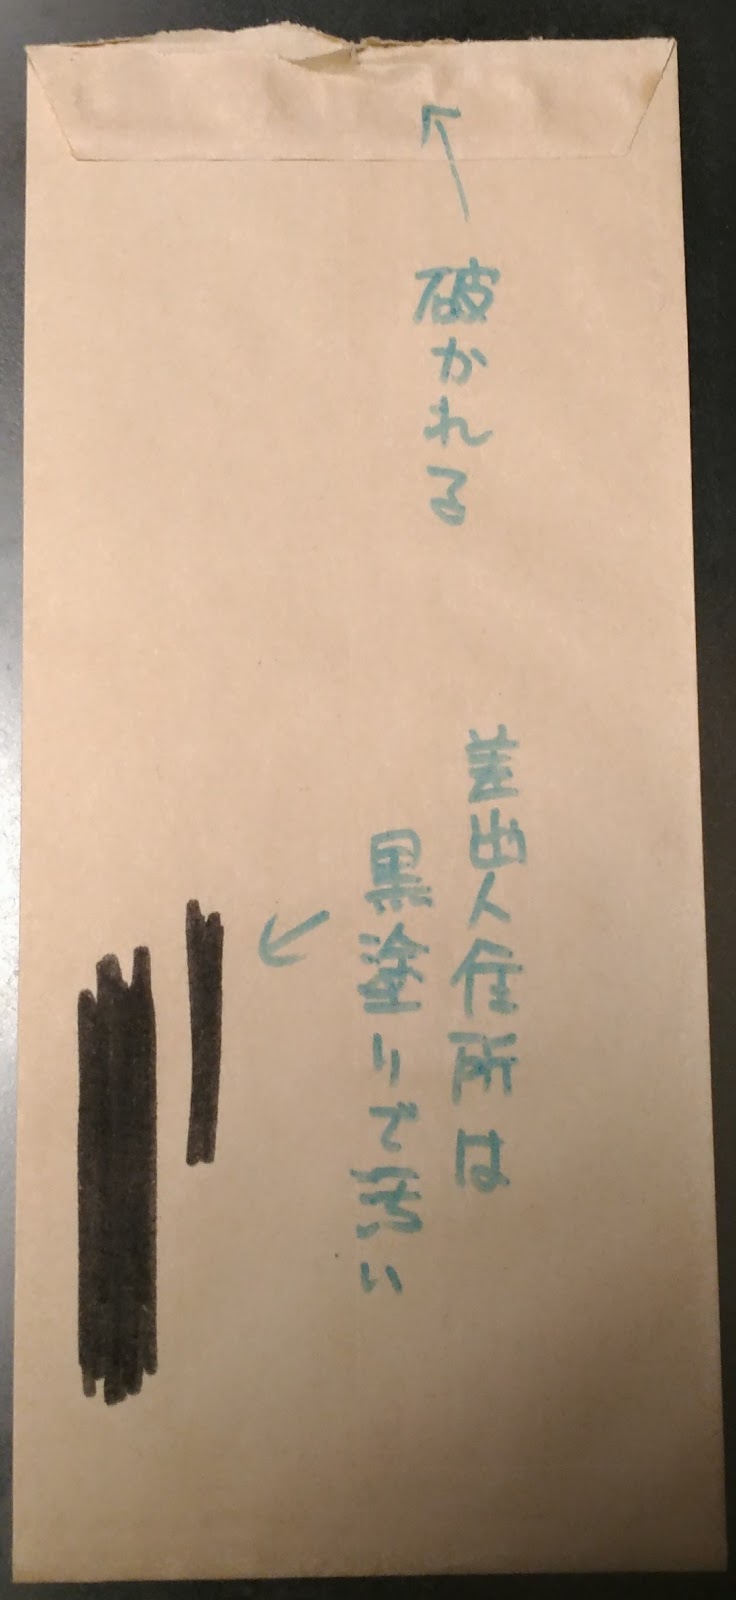 破かれる
差出人住所は
黒塗りで汚い